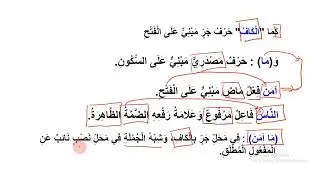 كَما "الْكَافُ" حَرْفُ جَرٍّ مَبْنِيٌّ عَلَى الْفَتْحِ
وَ(مَا) : حَرْفٌ مَصْدَرِيٌّ مَبْنِيٌّ عَلَى السُّكُونِ.
آمَنَ فِعْلٌ مَاضٍ مَبْنِيٌّ عَلَى الْفَتْحِ.
النَّاسُ فَاعِلٌ مَرْفُوعٌ وَعَلَامَةُ رَفْعِهِ الضَّمَّةُ الظَّاهِرَةُ.
(مَا آمَنَ) : فِي مَحَلِّ جَرٍّ بِالْكَافِ، وَشِبْهُ الْجُمْلَةِ فِي مَحَلِّ نَصْبٍ نَائِبٌ عَنِ
الْمَفْعُولِ الْمُطْلَقِ.